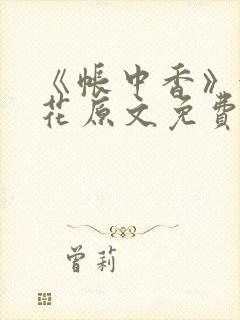 《帳中香》
花原文免費
曾莉